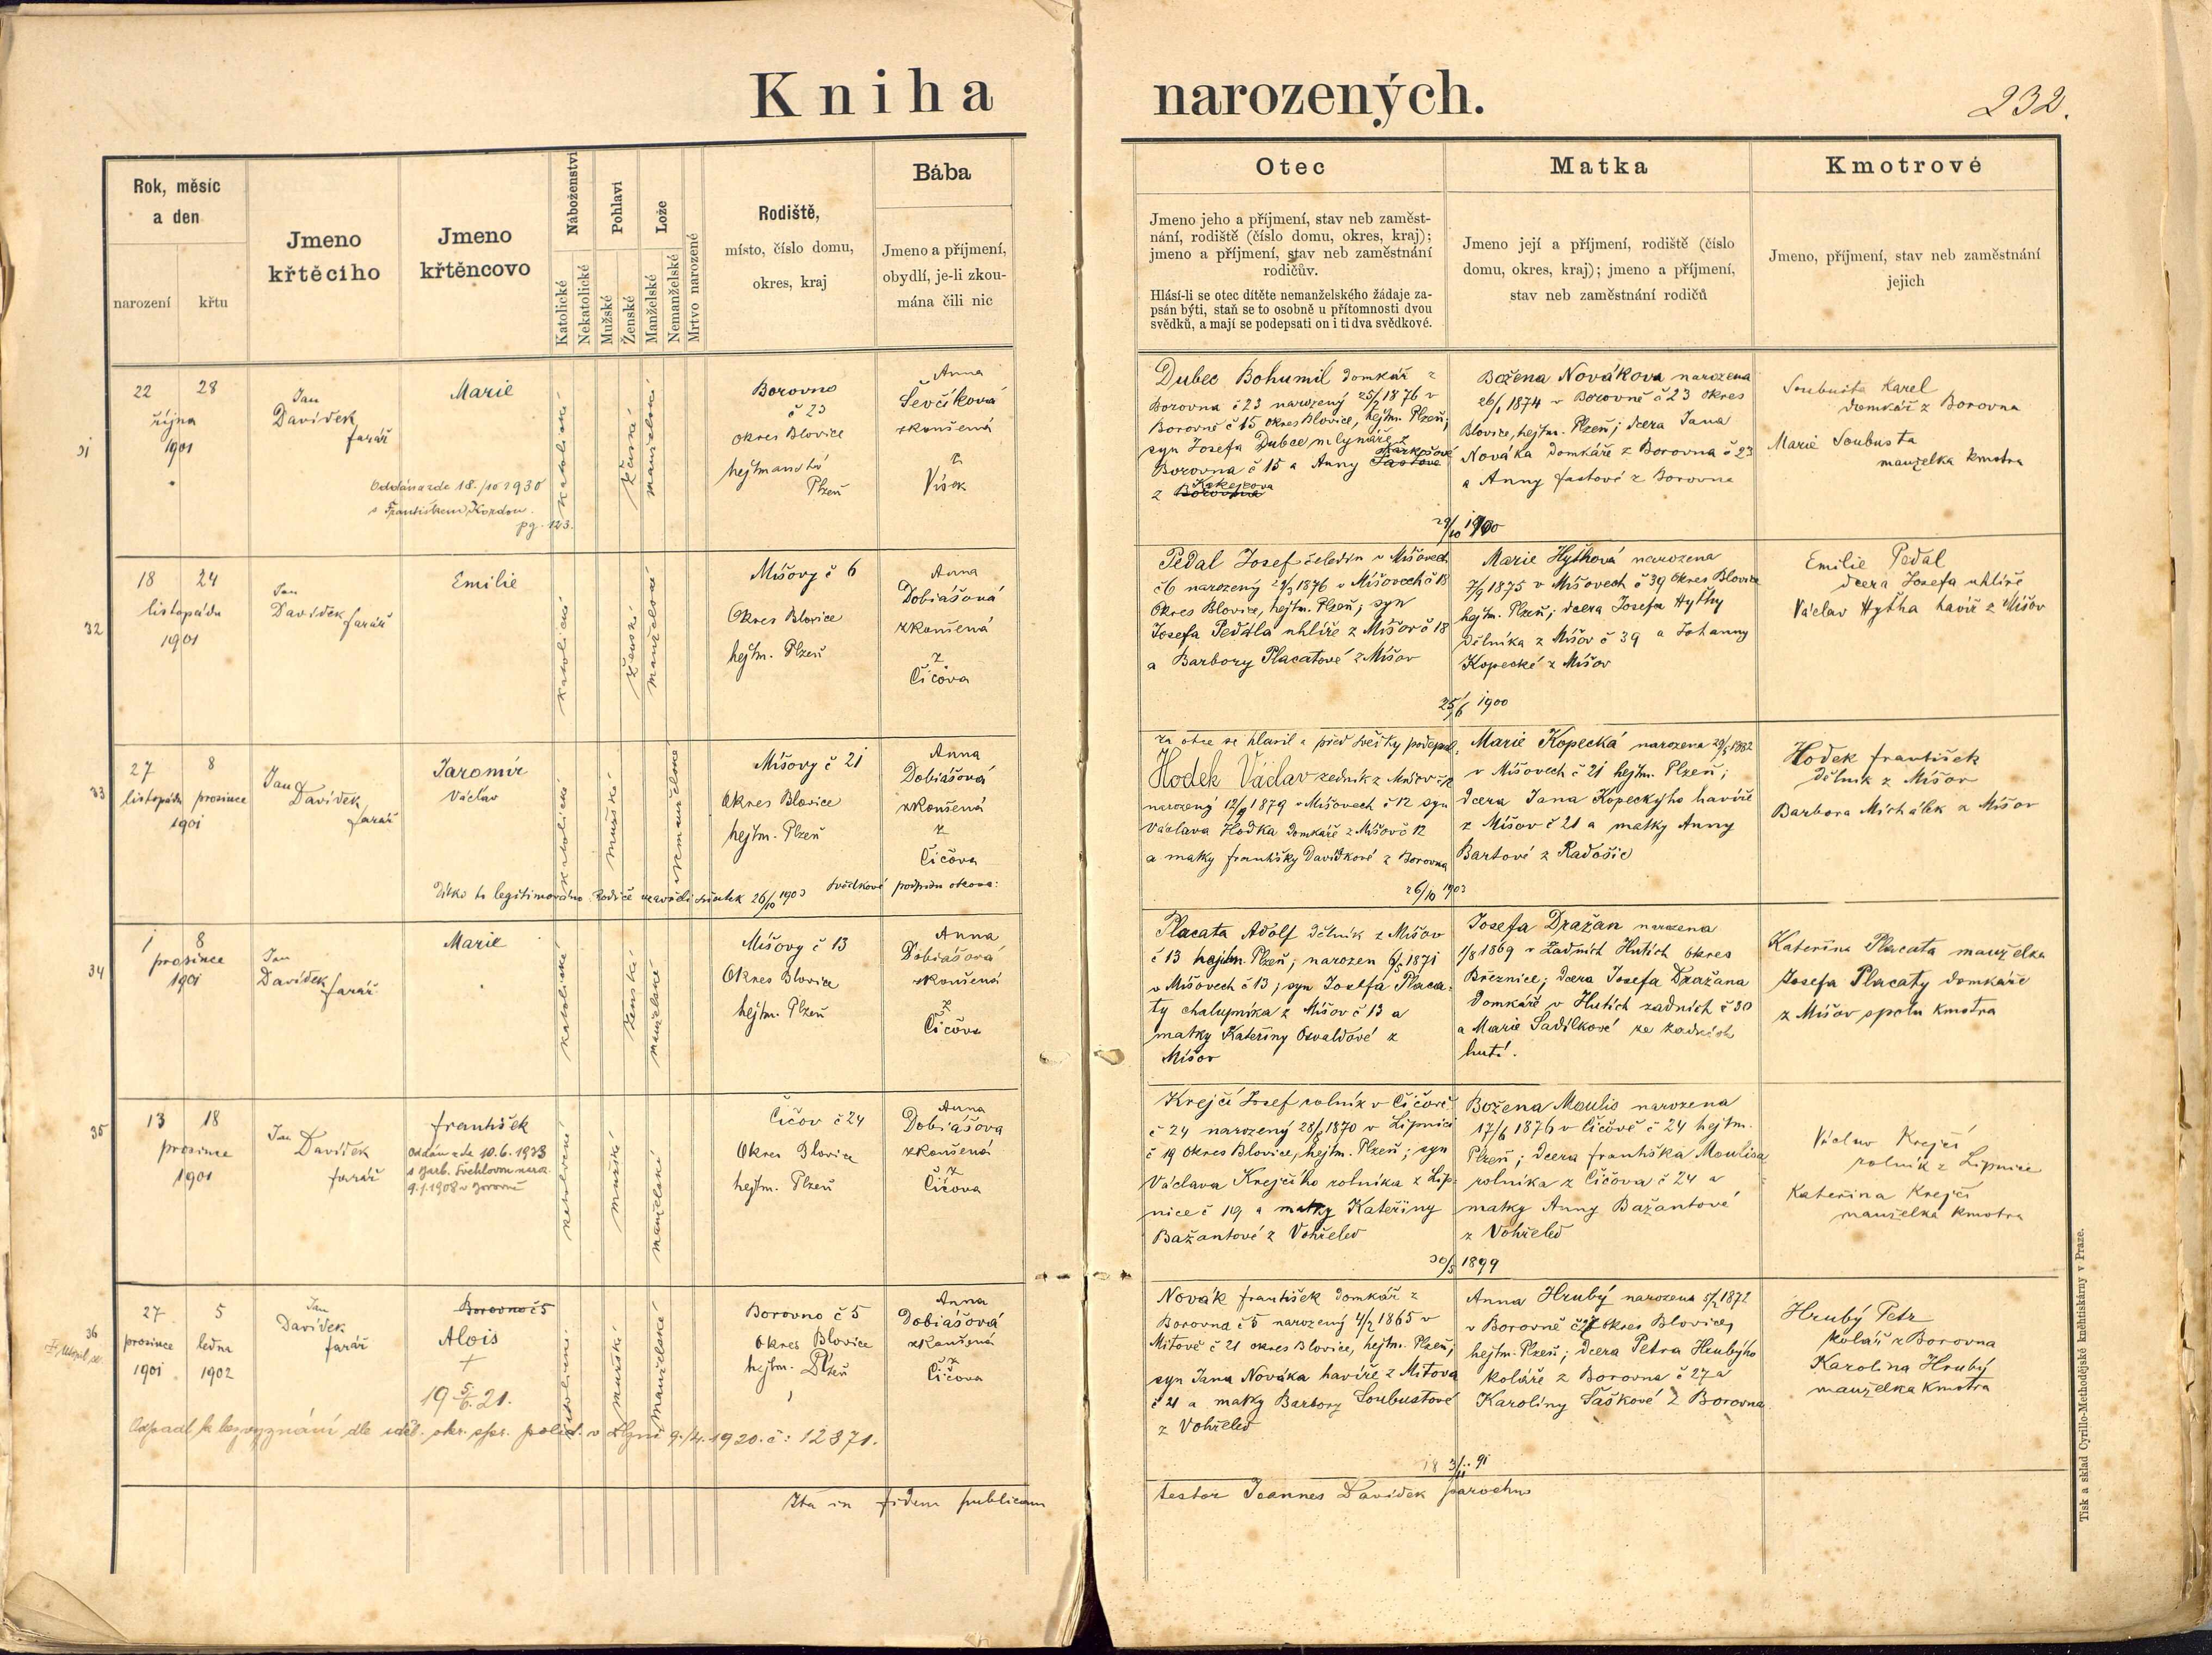 Kniha narozených.
232.
Rok, měsíc
a den
narození
křtu
Jmeno
křtěcího
Jmeno
křtěncovo
Náboženství
Katolické
Nekatolické
Pohlaví
Mužské
Ženské
Lože
Manželské
Nemanželské
Mrtvo narozené
Rodiště,
místo, číslo domu,
okres, kraj
Bába
Jmeno a příjmení,
obydlí, je-li zkou-
mána čili nic
Otec
Jmeno jeho a příjmení, stav neb zaměst-
nání, rodiště (číslo domu, okres, kraj);
jmeno a příjmení, stav neb zaměstnání
rodičův.
Hlásí-li se otec dítěte nemanželského žádaje za-
psán býti, staň se to osobně u přítomnosti dvou
svědků, a mají se podepsati on i ti dva svědkové.
Matka
Jmeno její a příjmení, rodiště (číslo
domu, okres, kraj); jmeno a příjmení,
stav neb zaměstnání rodičů
Kmotrové
Jmeno, příjmení, stav neb zaměstnání
jejich
31
22 28
října
1901
Jan
Davídek
farář
Marie
Oddána zde 18./10 1930
s Františkem Kordou
pg. 123.
katolické
ženské
manželské
Borovno
č 23
okres Blovice
hejtmanství
Plzeň
Anna
Ševčíková
zkoušená
z
Vísek
Dubec Bohumil domkář z
Borovna č 23 narozený 25/2 1876 v
Borovně č 15 okres Blovice, hejtm. Plzeň;
syn Josefa Dubce mlynáře z
Borovna č 15 a Anny
z Borovna
Božena Novákova narozena
26/1 1874 v Borovně č 23 okres
Blovice, hejtm. Plzeň; dcera Jana
Nováka domkáře z Borovna č 23
a Anny Fastové z Borovna
Soubusta Karel
domkář z Borovna
Marie Soubusta
manželka kmotra
29/10 1900
32
18 24
listopadu
1901
Jan
Davídek farář
Emilie
katolické
ženské
manželské
Míšovy č 6
Okres Blovice
hejtm. Plzeň
Anna
Dobiášová
zkoušená
z
Čičova
Pedal Josef čeledín v Míšovech
č 6 narozený 29/3 1876 v Míšovech č 18
Okres Blovice, hejtm. Plzeň; syn
Josefa Pedala uhlíře z Míšov č 18
a Barbory Placatové z Míšov
Marie Hythová narozena
7/9 1875 v Míšovech č 39 Okres Blovice
hejtm. Plzeň; dcera Josefa Hythy
dělníka z Míšov č 39 a Johanny
Kopecké z Míšov
Emilie Pedal
dcera Josefa uhlíře
Václav Hytha havíř z Míšov
25/6 1900
33
27 8
listopadu prosince
1901
Jan
Davídek
farář
Jaromír
Václav
katolické
mužské
nemanželské
Míšovy č 21
Okres Blovice
hejtm. Plzeň
Anna
Dobiášová
zkoušená
z
Čičova
Dítko to legitimováno Rodiče uzavřeli sňatek 26/10 1903 svědkové podpisu otcova:
za otce se hlásil a před svědky podepsal,
Hodek Václav zedník z Míšov č 12
narozený 12/9 1879 v Míšovech č 12 syn
Václava Hodka domkáře z Míšov č 12
a matky Františky Davídkové z Borovna
Marie Kopecká narozena 29/5 1882
v Míšovech č 21 hejtm. Plzeň;
dcera Jana Kopeckýho havíře
z Míšov č 21 a matky Anny
Bartové z Radošic
Hodek František
dělník z Míšov
Barbora Michálek z Míšov
26/10 1903
34
1 8
prosince
1901
Jan
Davídek farář
Marie
katolické
ženské
manželské
Míšovy č 13
Okres Blovice
hejtm. Plzeň
Anna
Dobiášová
zkoušená
z
Čičova
Placata Adolf dělník z Míšov
č 13 hejtm. Plzeň; narozen 6/5 1871
v Míšovech č 13; syn Josefa Placa-
ty chalupníka z Míšov č 13 a
matky Kateřiny Osvaldové z
Míšov
Josefa Dražan narozena
1/8 1869 v Zadních Hutích okres
Březnice; dcera Josefa Dražana
domkáře v Hutích zadních č 30
a Marie Sadílkové ze zadních
hutí.
Kateřina Placata manželka
Josefa Placaty domkáře
z Míšov spolu kmotra
35
13 18
prosince
1901
Jan Davídek
farář
František
Oddán zde 10.6.1933
9.1.1908 v Borovně
katolické
mužské
manželské
Čičov č 24
Okres Blovice
hejtm. Plzeň
Anna
Dobiášova
zkoušená
z
Čičova
Krejčí Josef rolník v Čičově
č 24 narozený 28/8 1870 v Lipnici
č 19 okres Blovice, hejtm. Plzeň; syn
Václava Krejčího rolníka z Lip-
nice č 19 a matky Kateřiny
Bažantové z Vohřeled
Božena Moulis narozena
17/6 1876 v Čičově č 24 hejtm.
Plzeň; dcera Františka Moulisa
rolníka z Čičova č 24 a
matky Anny Bažantové
z Vohřeled
Václav Krejčí
rolník z Lipnice
Kateřina Krejčí
manželka kmotra
30/5 1899
36
27 5
prosince ledna
1901 1902
Jan
Davídek
farář
Borovno č 5
Alois
+
19 5/6. 21.
mužské
manželské
Borovno č 5
okres Blovice
hejtm. Plzeň
Anna
Dobiášová
zkoušená
z
Čičova
Odpadl k bezvyznání dle sděl. okr. spr. polit. v Plzni 9./4. 1920. č: 12371.
Novák František domkář z
Borovna č 5 narozený 4/2 1865 v
Mítově č 21 okres Blovice, hejtm. Plzeň;
syn Jana Nováka havíře z Mítova
č 21 a matky Barbory Soubustové
z Vohřeled
Anna Hrubý narozena 5/2 1872
v Borovně č 27 okres Blovice,
hejtm. Plzeň; dcera Petra Hrubýho
koláře z Borovna č 27 a
Karolíny Šaškové z Borovna
Hrubý Petr
kolář z Borovna
Karolina Hrubý
manželka kmotra
18 3/11 91
Ita in fidem publicam testor Joannes Davídek parochus
Tisk a sklad Cyrillo-Methodějské knihtiskárny v Praze.